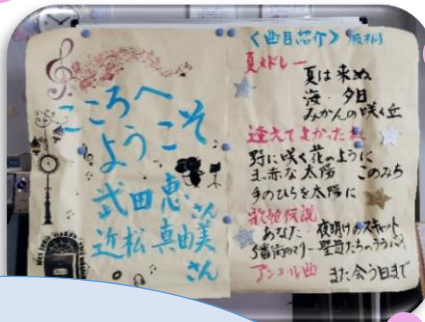 こころへ
ようこそ
武田恵さん
近松真由美
さん
<曲目紹介>
夏メドレー
夏は来ぬ
海 夕日
みかんの咲く丘
逢えてよかったね
野に咲く花のように
真赤な太陽 このみち
手のひらを太陽に
歌姫伝説
あなた 夜明けのスキャット
5番街のマリー 聖母たちのララバイ
アンコール曲 また会う日まで